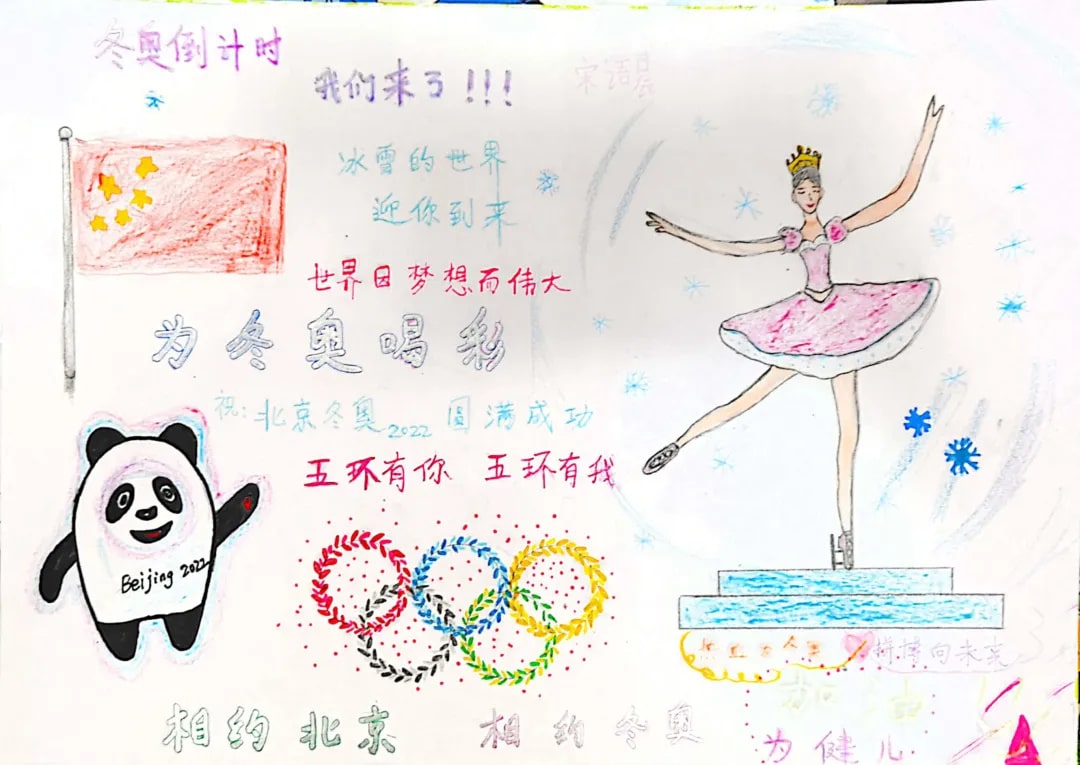 冬奥倒计时
我们来了!!!
宋语晨
冰雪的世界
迎你到来
世界因梦想而伟大
为冬奥喝彩
祝:北京冬奥2022圆满成功
五环有你 五环有我
Beijing 2022
拼搏向未来
加油
为健儿
相约北京 相约冬奥